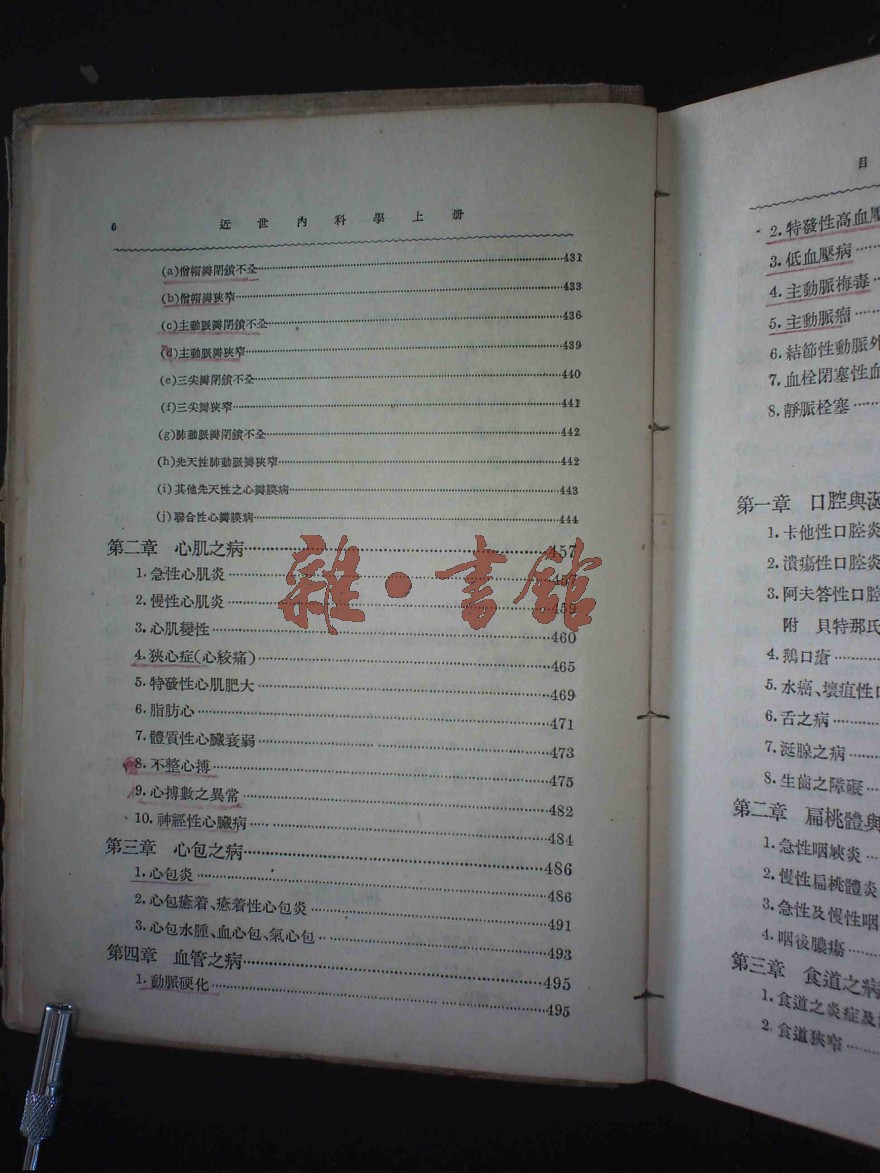 6 近世內科學上册
(a)僧帽瓣閉鎖不全 431
(b)僧帽瓣狹窄 433
(c)主動脈瓣閉鎖不全 436
(d)主動脈瓣狹窄 439
(e)三尖瓣閉鎖不全 440
(f)三尖瓣狹窄 441
(g)肺動脈瓣閉鎖不全 442
(h)先天性肺動脈瓣狹窄 442
(i)其他先天性之心瓣膜病 443
(j)聯合性心瓣膜病 444
第二章 心肌之病 457
1.急性心肌炎 457
2.慢性心肌炎 459
3.心肌變性 460
4.狹心症(心絞痛) 465
5.特發性心肌肥大 469
6.脂肪心 471
7.體質性心臟衰弱 473
8.不整心搏 475
9.心搏數之異常 482
10.神經性心臟病 484
第三章 心包之病 486
1.心包炎 486
2.心包癒着、癒着性心包炎 491
3.心包水腫、血心包、氣心包 493
第四章 血管之病 495
1.動脈硬化 495
雜·書館
目
2.特發性高血壓
3.低血壓病
4.主動脈梅毒
5.主動脈瘤
6.結節性動脈外
7.血栓閉塞性血
8.靜脈栓塞
第一章 口腔與涎
1.卡他性口腔炎
2.潰瘍性口腔炎
3.阿夫答性口腔
附 貝特那氏
4.鵝口瘡
5.水癌、壞疽性口
6.舌之病
7.涎腺之病
8.生齒之障礙
第二章 扁桃體與
1.急性咽峽炎
2.慢性扁桃體炎
3.急性及慢性咽
4.咽後膿瘍
第三章 食道之病
1.食道之炎症及
2.食道狹窄